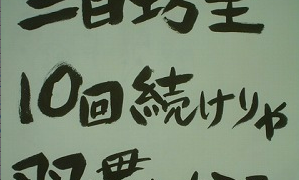 三日坊主
10回続けりゃ